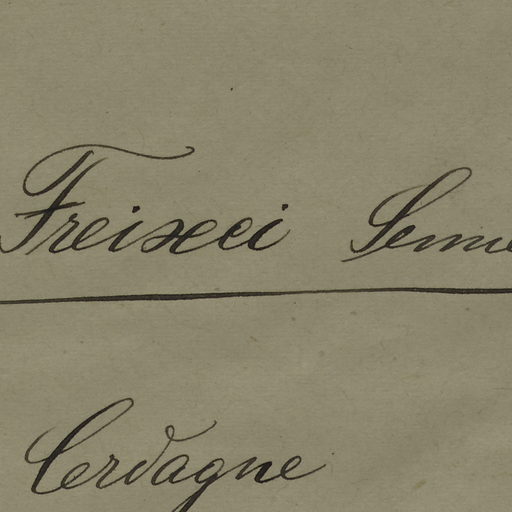 Freixeei Senne
Cerdagne